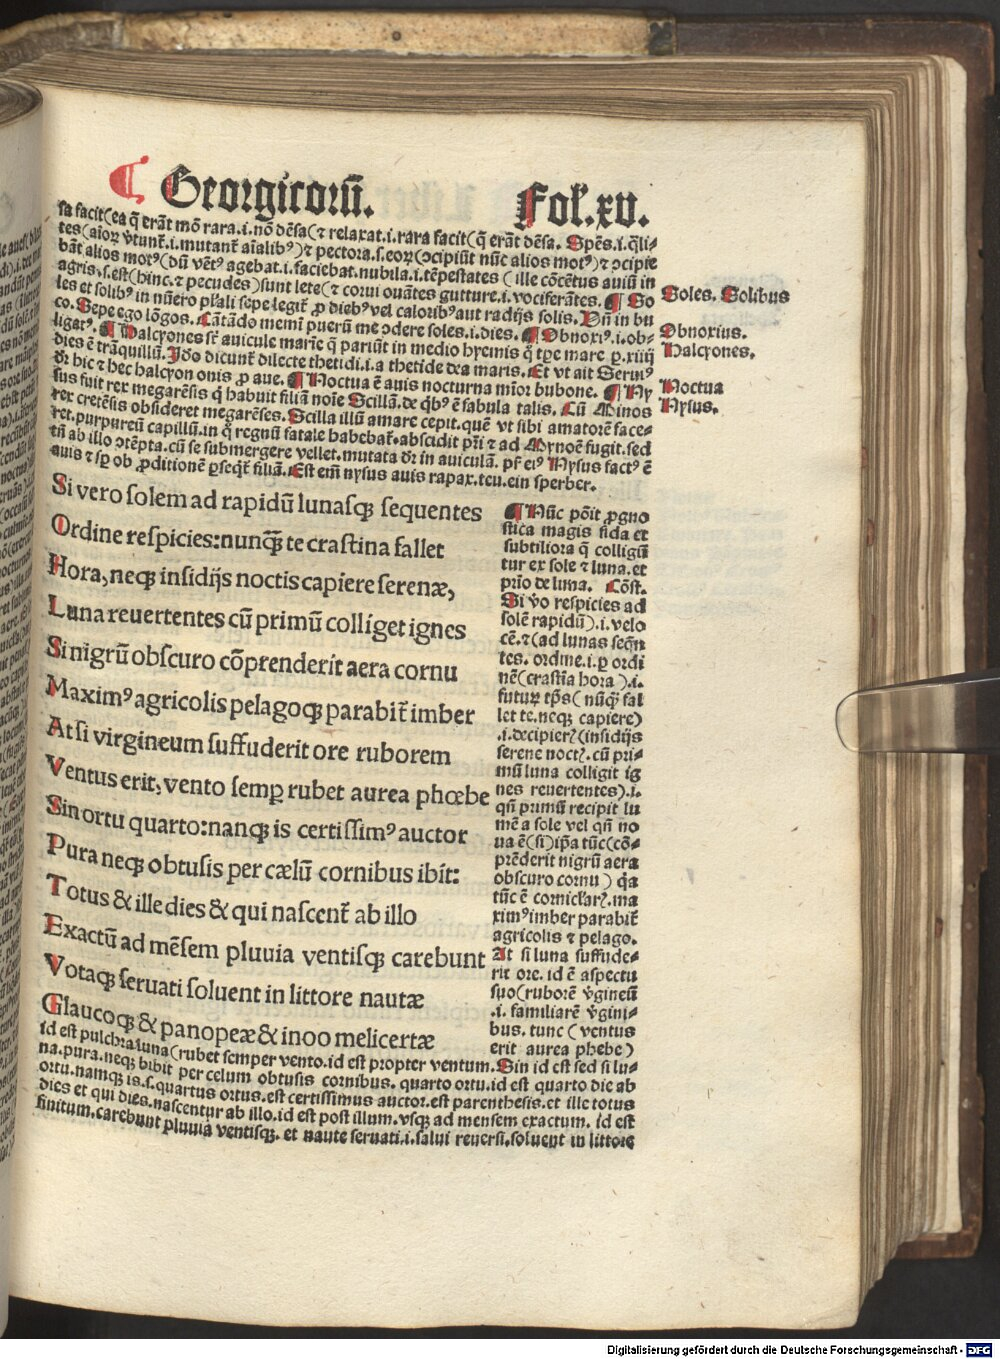 ¶ Georgicorū.
Fol. xv.
sa facit(ea q̄ erāt mō rara.i.nō dēsa(⁊ relaxat.i.rara facit(q̄ erāt dēsa. Spēs.i.q̄li-
tes(aīoꝝ v̄tunt᷑.i.mutant᷑ aīalibꝰ)⁊ pectora.s.eoꝝ(ↄcipiūt nūc alios motꝰ)⁊ ↄcipie
bāt alios motꝰ(dū vētꝰ agebat.i.faciebat.nubila.i.tēpestates ( ille cōcētus auiū in
agris.s.est(hinc.⁊ pecudes)sunt lete(⁊ corui ouātes gutture.i.vociferātes. ¶ So
les et solibꝰ in nūero pl̄ali sepe legit᷑ ꝓ diebꝰ vel caloribꝰ aut radijs solis. Vn̄ in bu
co. Sepe ego lōgos. Cātādo memī puerū me ↄdere soles.i.dies. ¶ Obnoxiꝰ.i.ob-
ligatꝰ. ¶ Halcyones st᷑ auicule marīe q̄ pariūt in medio hyemis qͦ tꝑe mare ꝑ.xiiij
dies ē trāquillū. Iōo dicunt᷑ dilecte thetidi.i.a thetide dea maris. Et vt ait Seruiꝰ
dr̄ hic ⁊ hec halcyon onis ꝓ aue. ¶ Noctua ē auis nocturna mīor bubone. ¶ Ny
sus fuit rex megarēsis q̄ habuit filiā noīe Scillā.de q̄bꝰ ē fabula talis. Cū Minos
rex cretēsis obsideret megarēses. Scilla illū amare cepit.quē vt sibi amatorē face-
ret.purpureū capillū.in qͦ regnū fatale habebat᷑.abscidit pr̄i ⁊ ad Mynoē fugit.sed
tn̄ ab illo ↄtēpta.cū se submergere vellet.mutata dr̄ in auiculā. pr̄ eiꝰ Nysus factꝰ ē
auis ⁊ sꝑ ob ꝓditionē ꝑseqt᷑ filiā. Est em̄ nysus auis rapax.teu.ein sperber.
Soles. Solibus
Obnoxius.
Halcyones.
Noctua
Nysus.
Si vero solem ad rapidū lunasqꝫ sequentes
Ordine respicies:nunqꝫ̄ te crastina fallet
Hora,neqꝫ insidijs noctis capiere serenæ,
Luna reuertentes cū primū colliget ignes
Si nigrū obscuro cōprenderit aera cornu
Maximꝰ agricolis pelagoqꝫ parabit᷑ imber
At si virgineum suffuderit ore ruborem
Ventus erit,vento semꝑ rubet aurea phœbe
Sin ortu quarto:nanqꝫ is certissimꝰ auctor
Pura neqꝫ obtusis per cælū cornibus ibit:
Totus & ille dies & qui nascent᷑ ab illo
Exactū ad mēsem pluuia ventisqꝫ carebunt
Votaqꝫ seruati soluent in littore nautæ
Glaucoqꝫ & panopeæ & inoo melicertæ
¶ Nūc pōit ꝓgno
stica magis fida et
subtiliora q̄ colligū
tur ex sole ⁊ luna.et
prīo de luna. Cōst.
Si vo respicies ad
solē rapidū).i.velo
cē.⁊(ad lunas seqn̄
tes. ordine.i.ꝑ ordi
nē(crastīa hora).i.
futuꝝ tp̄s( nūqꝫ̄ fal
let te.neqꝫ capiere)
.i.decipierꝭ(insidijs
serene noctꝭ.cū pri-
mū luna colligit ig
nes reuertentes).i.
qn̄ primū recipit lu
mē a sole vel qn̄ no
ua ē(si)ip̄a tūc(cō-
prēderit nigrū aera
obscuro cornu) q̄a
tūc ē cornicl̄arꝭ.ma
ximꝰ imber parabit᷑
agricolis ⁊ pelago.
At si luna suffude-
rit ore. id ē aspectu
suo(ruborē v̄gineū
.i. familiarē v̄gini-
bus. tunc ( ventus
erit aurea phebe)
id est pulchra.luna(rubet semper vento.id est propter ventum. Sin id est sed si lu-
na.pura.neqꝫ bibit per celum obtusis cornibus. quarto ortu.id est quarto die ab
ortu.namqꝫ is.s.quartus ortus.est certissimus auctor.est parenthesis.et ille totus
dies et qui dies.nascentur ab illo.id est post illum.vsqꝫ ad mensem exactum. id est
finitum.carebunt pluuia ventisqꝫ. et naute seruati.i.salui reuersi.soluent in littore
Digitalisierung gefördert durch die Deutsche Forschungsgemeinschaft - DFG